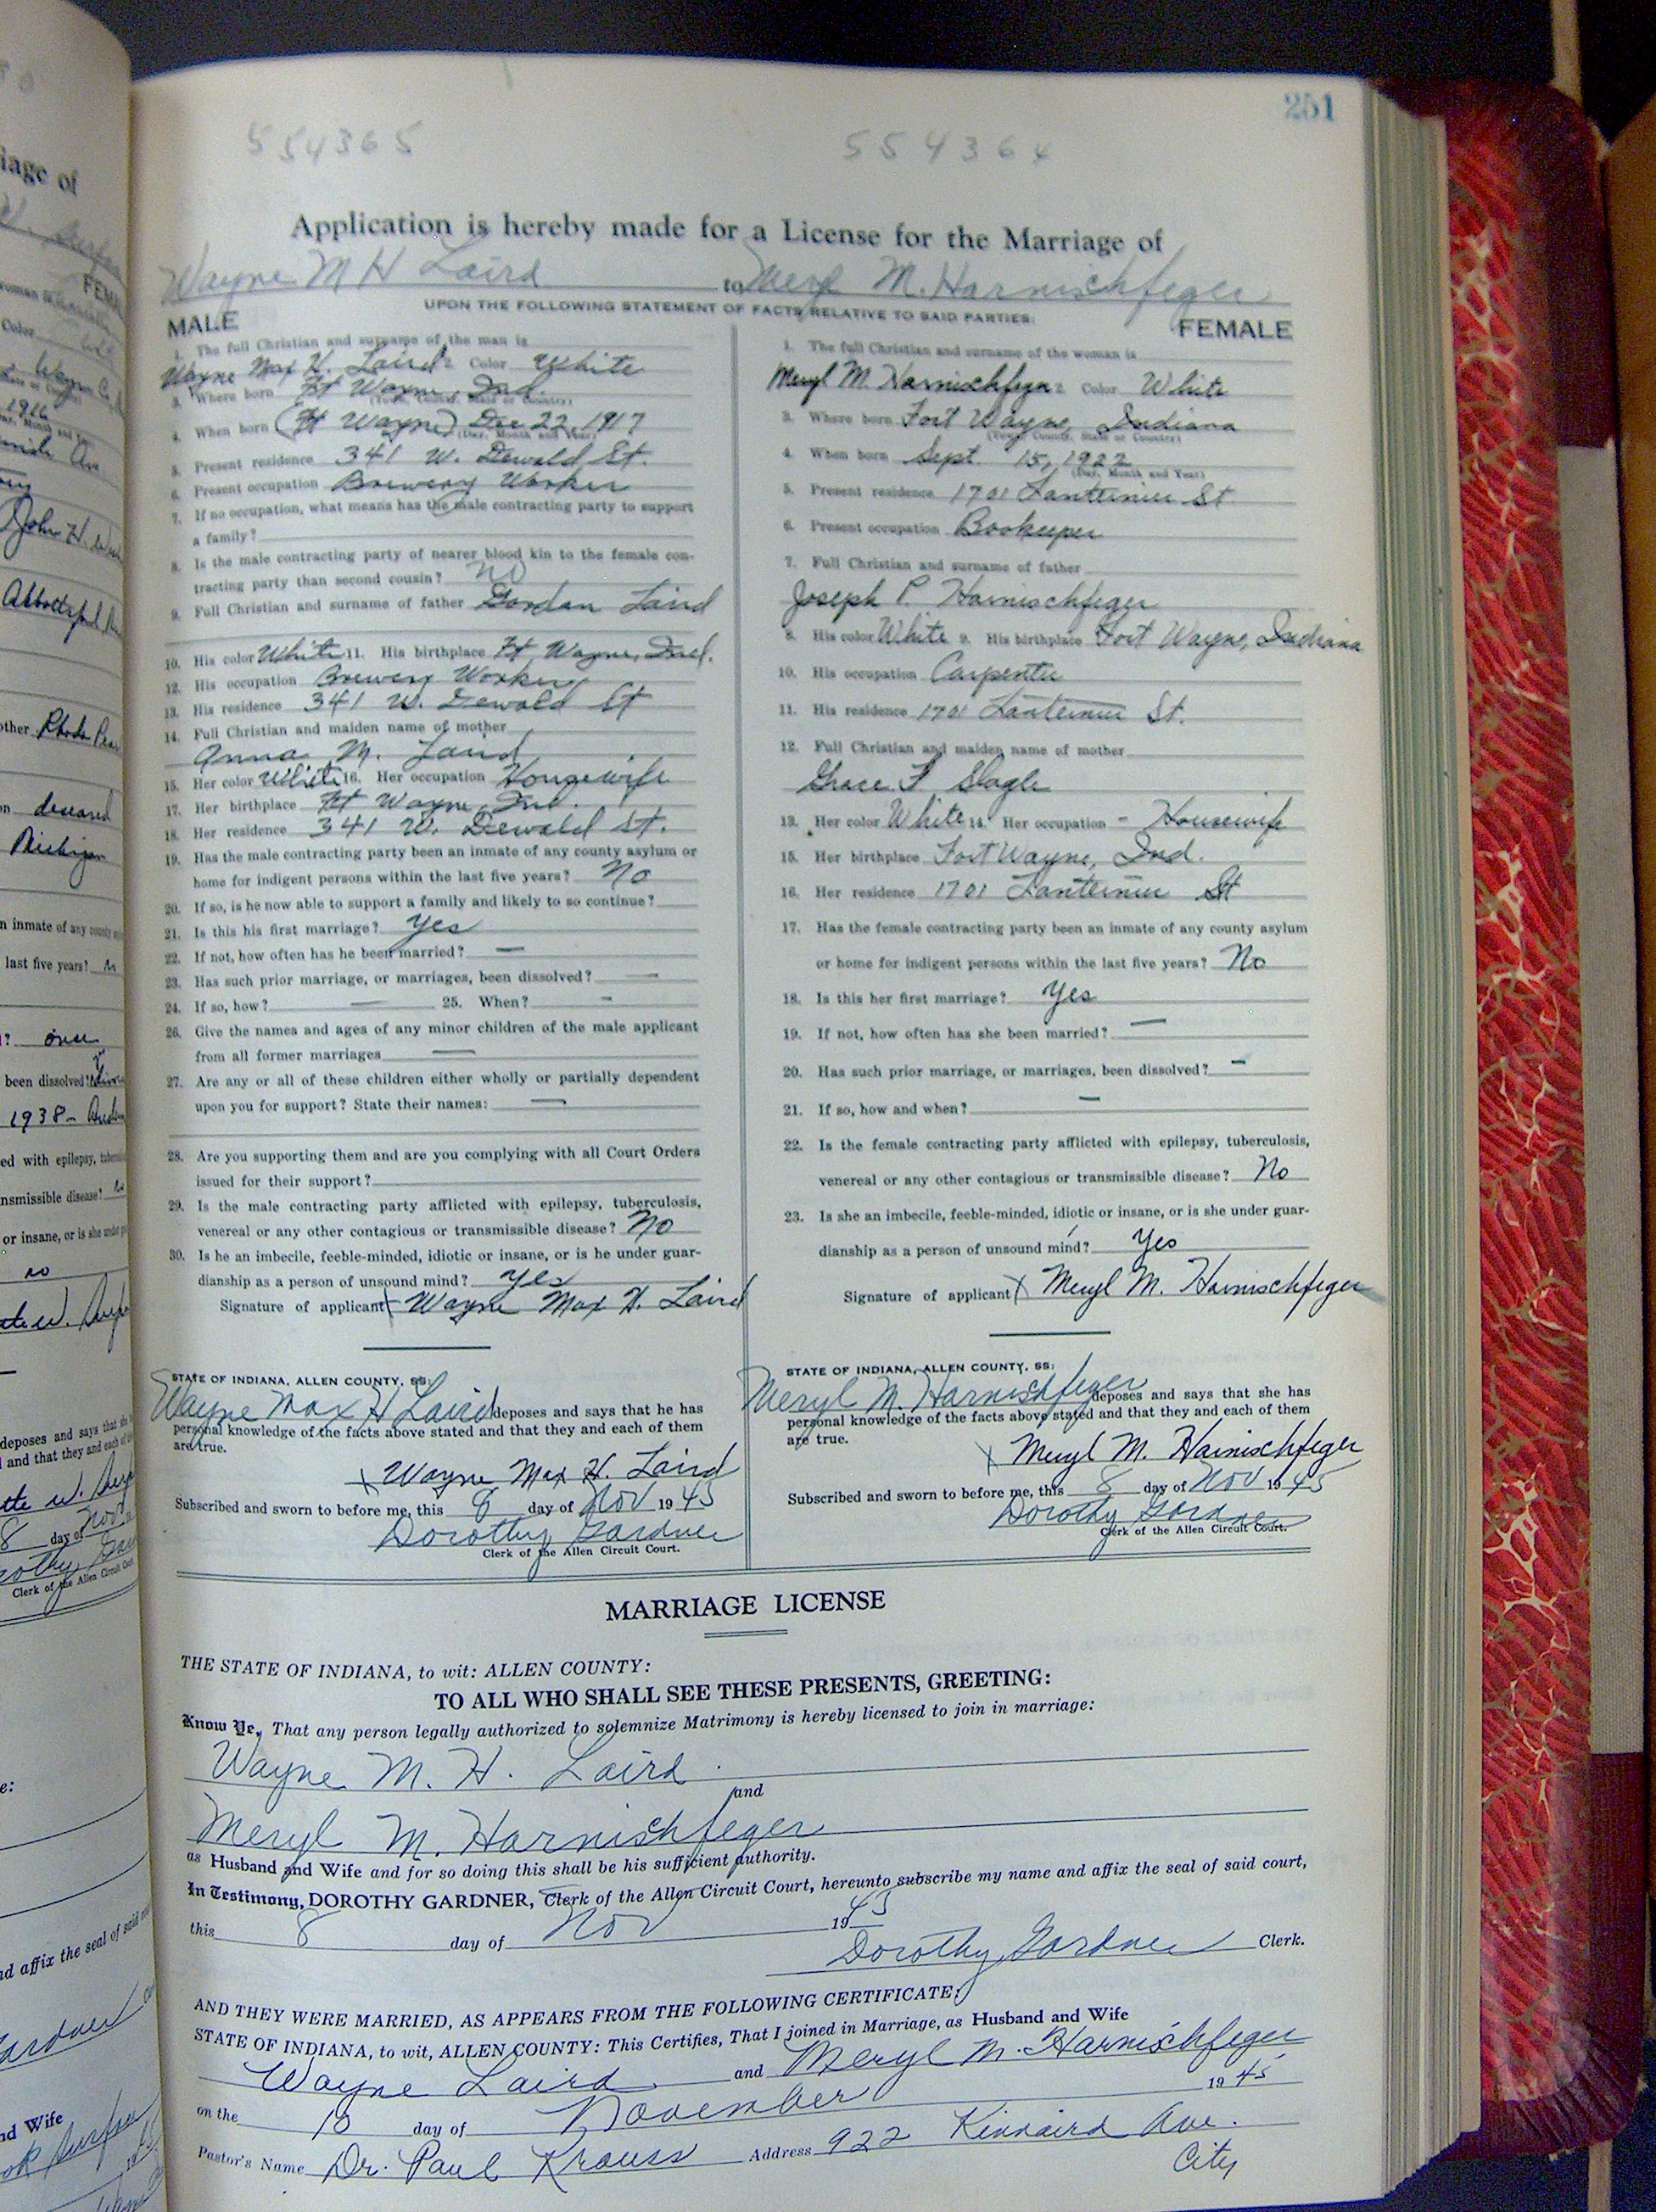 251
554365 554364
Application is hereby made for a License for the Marriage of
Wayne M H Laird to Meryl M. Harnischfeger
UPON THE FOLLOWING STATEMENT OF FACTS RELATIVE TO SAID PARTIES:
MALE
1. The full Christian and surname of the man is
Wayne Max H. Laird 2. Color White
3. Where born Ft Wayne, Ind.
(Town, County, State or Country)
4. When born (Ft Wayne) Dec 22, 1917
(Day, Month and Year)
5. Present residence 341 W. Dewald St.
6. Present occupation Brewery Worker
7. If no occupation, what means has the male contracting party to support
a family?
8. Is the male contracting party of nearer blood kin to the female con-
tracting party than second cousin? No
9. Full Christian and surname of father Gordon Laird
10. His color White 11. His birthplace Ft Wayne, Ind.
12. His occupation Brewery Worker
13. His residence 341 W. Dewald St
14. Full Christian and maiden name of mother
Anna M. Laird
15. Her color White 16. Her occupation Housewife
17. Her birthplace Ft Wayne, Ind.
18. Her residence 341 W. Dewald St.
19. Has the male contracting party been an inmate of any county asylum or
home for indigent persons within the last five years? No
20. If so, is he now able to support a family and likely to so continue?
21. Is this his first marriage? Yes
22. If not, how often has he been married? —
23. Has such prior marriage, or marriages, been dissolved? —
24. If so, how? — 25. When? -
26. Give the names and ages of any minor children of the male applicant
from all former marriages —
27. Are any or all of these children either wholly or partially dependent
upon you for support? State their names: —
28. Are you supporting them and are you complying with all Court Orders
issued for their support?
29. Is the male contracting party afflicted with epilepsy, tuberculosis,
venereal or any other contagious or transmissible disease? No
30. Is he an imbecile, feeble-minded, idiotic or insane, or is he under guar-
dianship as a person of unsound mind? Yes
Signature of applicant X Wayne Max H. Laird
STATE OF INDIANA, ALLEN COUNTY, SS:
Wayne Max H Laird deposes and says that he has
personal knowledge of the facts above stated and that they and each of them
are true.
X Wayne Max H. Laird
Subscribed and sworn to before me, this 8 day of Nov 1945
Dorothy Gardner
Clerk of the Allen Circuit Court.
FEMALE
1. The full Christian and surname of the woman is
Meryl M. Harnischfeger 2. Color White
3. Where born Fort Wayne, Indiana
(Town, County, State or Country)
4. When born Sept. 15, 1922
(Day, Month and Year)
5. Present residence 1701 St
6. Present occupation Bookeeper
7. Full Christian and surname of father
Joseph P. Harnischfeger
8. His color White 9. His birthplace Fort Wayne, Indiana
10. His occupation Carpenter
11. His residence 1701 St.
12. Full Christian and maiden name of mother
Grace F. Slagle
13. Her color White 14. Her occupation - Housewife
15. Her birthplace Fort Wayne, Ind.
16. Her residence 1701 St
17. Has the female contracting party been an inmate of any county asylum
or home for indigent persons within the last five years? No
18. Is this her first marriage? Yes
19. If not, how often has she been married? —
20. Has such prior marriage, or marriages, been dissolved? -
21. If so, how and when? —
22. Is the female contracting party afflicted with epilepsy, tuberculosis,
venereal or any other contagious or transmissible disease? No
23. Is she an imbecile, feeble-minded, idiotic or insane, or is she under guar-
dianship as a person of unsound mind? Yes
Signature of applicant X Meryl M. Harnischfeger
STATE OF INDIANA, ALLEN COUNTY, SS:
Meryl M. Harnischfeger deposes and says that she has
personal knowledge of the facts above stated and that they and each of them
are true.
X Meryl M. Harnischfeger
Subscribed and sworn to before me, this 8 day of Nov 1945
Dorothy Gardner
Clerk of the Allen Circuit Court.
MARRIAGE LICENSE
THE STATE OF INDIANA, to wit: ALLEN COUNTY:
TO ALL WHO SHALL SEE THESE PRESENTS, GREETING:
Know Ye, That any person legally authorized to solemnize Matrimony is hereby licensed to join in marriage:
Wayne M. H. Laird
and
Meryl M. Harnishfeger
as Husband and Wife and for so doing this shall be his sufficient authority.
In Testimony, DOROTHY GARDNER, Clerk of the Allen Circuit Court, hereunto subscribe my name and affix the seal of said court,
this 8 day of Nov 1945
Dorothy Gardner Clerk.
AND THEY WERE MARRIED, AS APPEARS FROM THE FOLLOWING CERTIFICATE:
STATE OF INDIANA, to wit, ALLEN COUNTY: This Certifies, That I joined in Marriage, as Husband and Wife
Wayne Laird and Meryl M. Harnischfeger
on the 10 day of November 1945
Pastor's Name Dr. Paul Krauss Address 922 Kinnaird Ave.
City